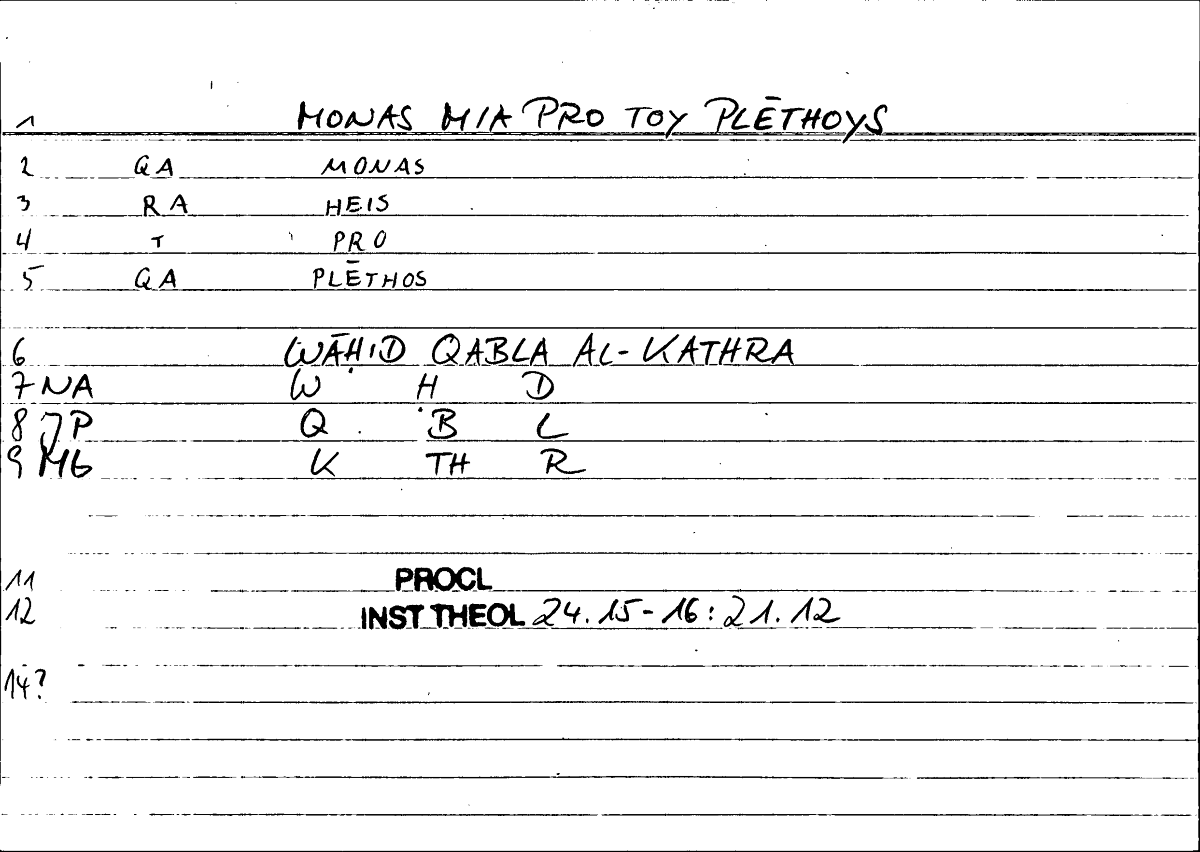 1 MONAS MIA PRO TOY PLĒTHOYS
2 QA MONAS
3 RA HEIS
4 T PRO
5 QA PLĒTHOS
6 WĀḤID QABLA AL-KATHRA
7 NA W Ḥ D
8 JP Q B L
9 MG K TH R
11 PROCL
12 INST THEOL 24.15-16:21.12
14?